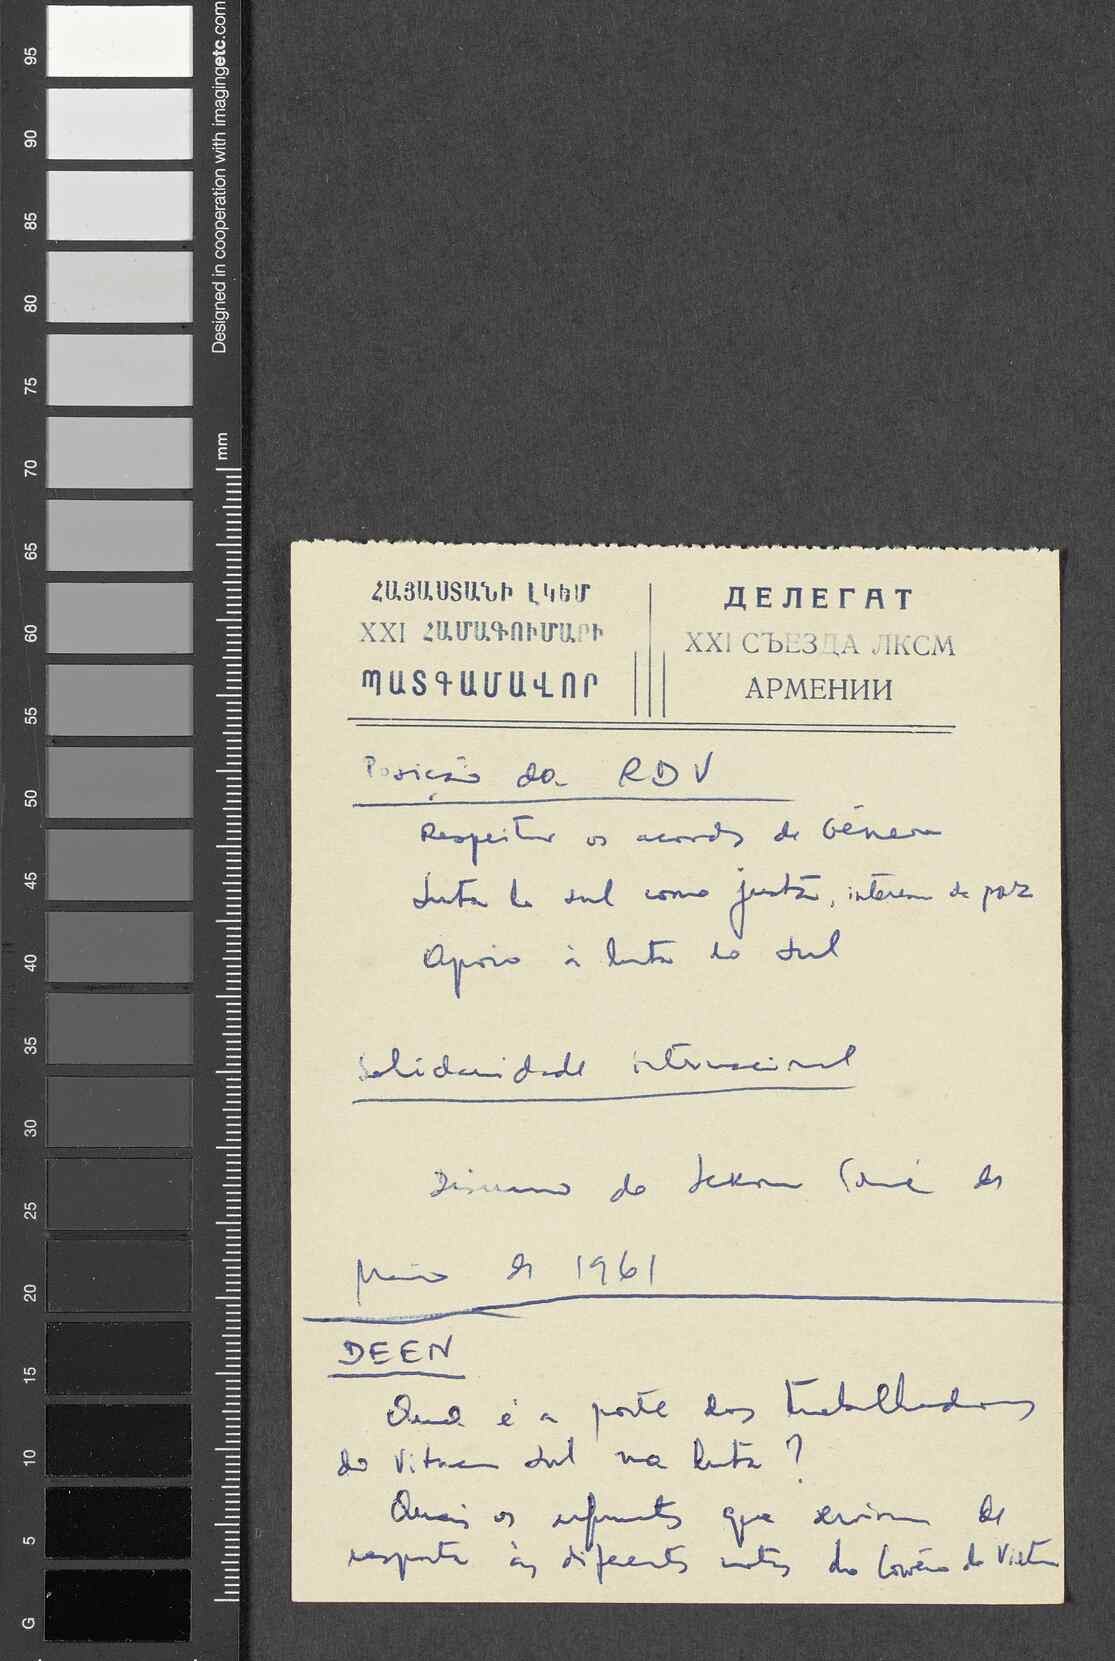 Designed in cooperation with imagingetc.com
mm
95
90
85
80
75
70
65
60
55
50
45
40
35
30
25
20
15
10
5
G
ՀԱՅԱՍՏԱՆԻ ԼԿԵՄ
XXI ՀԱՄԱԳՈՒՄԱՐԻ
ՊԱՏԳԱՄԱՎՈՐ
ДЕЛЕГАТ
XXI СЪЕЗДА ЛКСМ
АРМЕНИИ
Posição da RDV
Respeitar os acordos de Génève
Luta do sul como justa, interesse de paz
Apoio à luta do Sul
Solidariedade internacional
Discurso de Sekou Touré de
maio de 1961
DEEN
Qual é a parte dos trabalhadores
do Vitnam Sul na luta?
Quais os que de
resposta às diferentes notas do Governo do Vietn